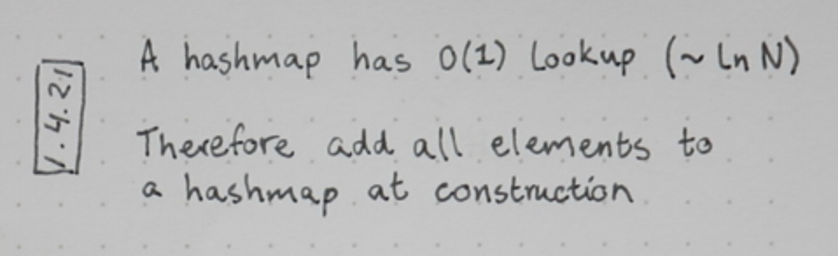 1.4.21
A hashmap has O(1) lookup (~ ln N)
Therefore add all elements to
a hashmap at construction